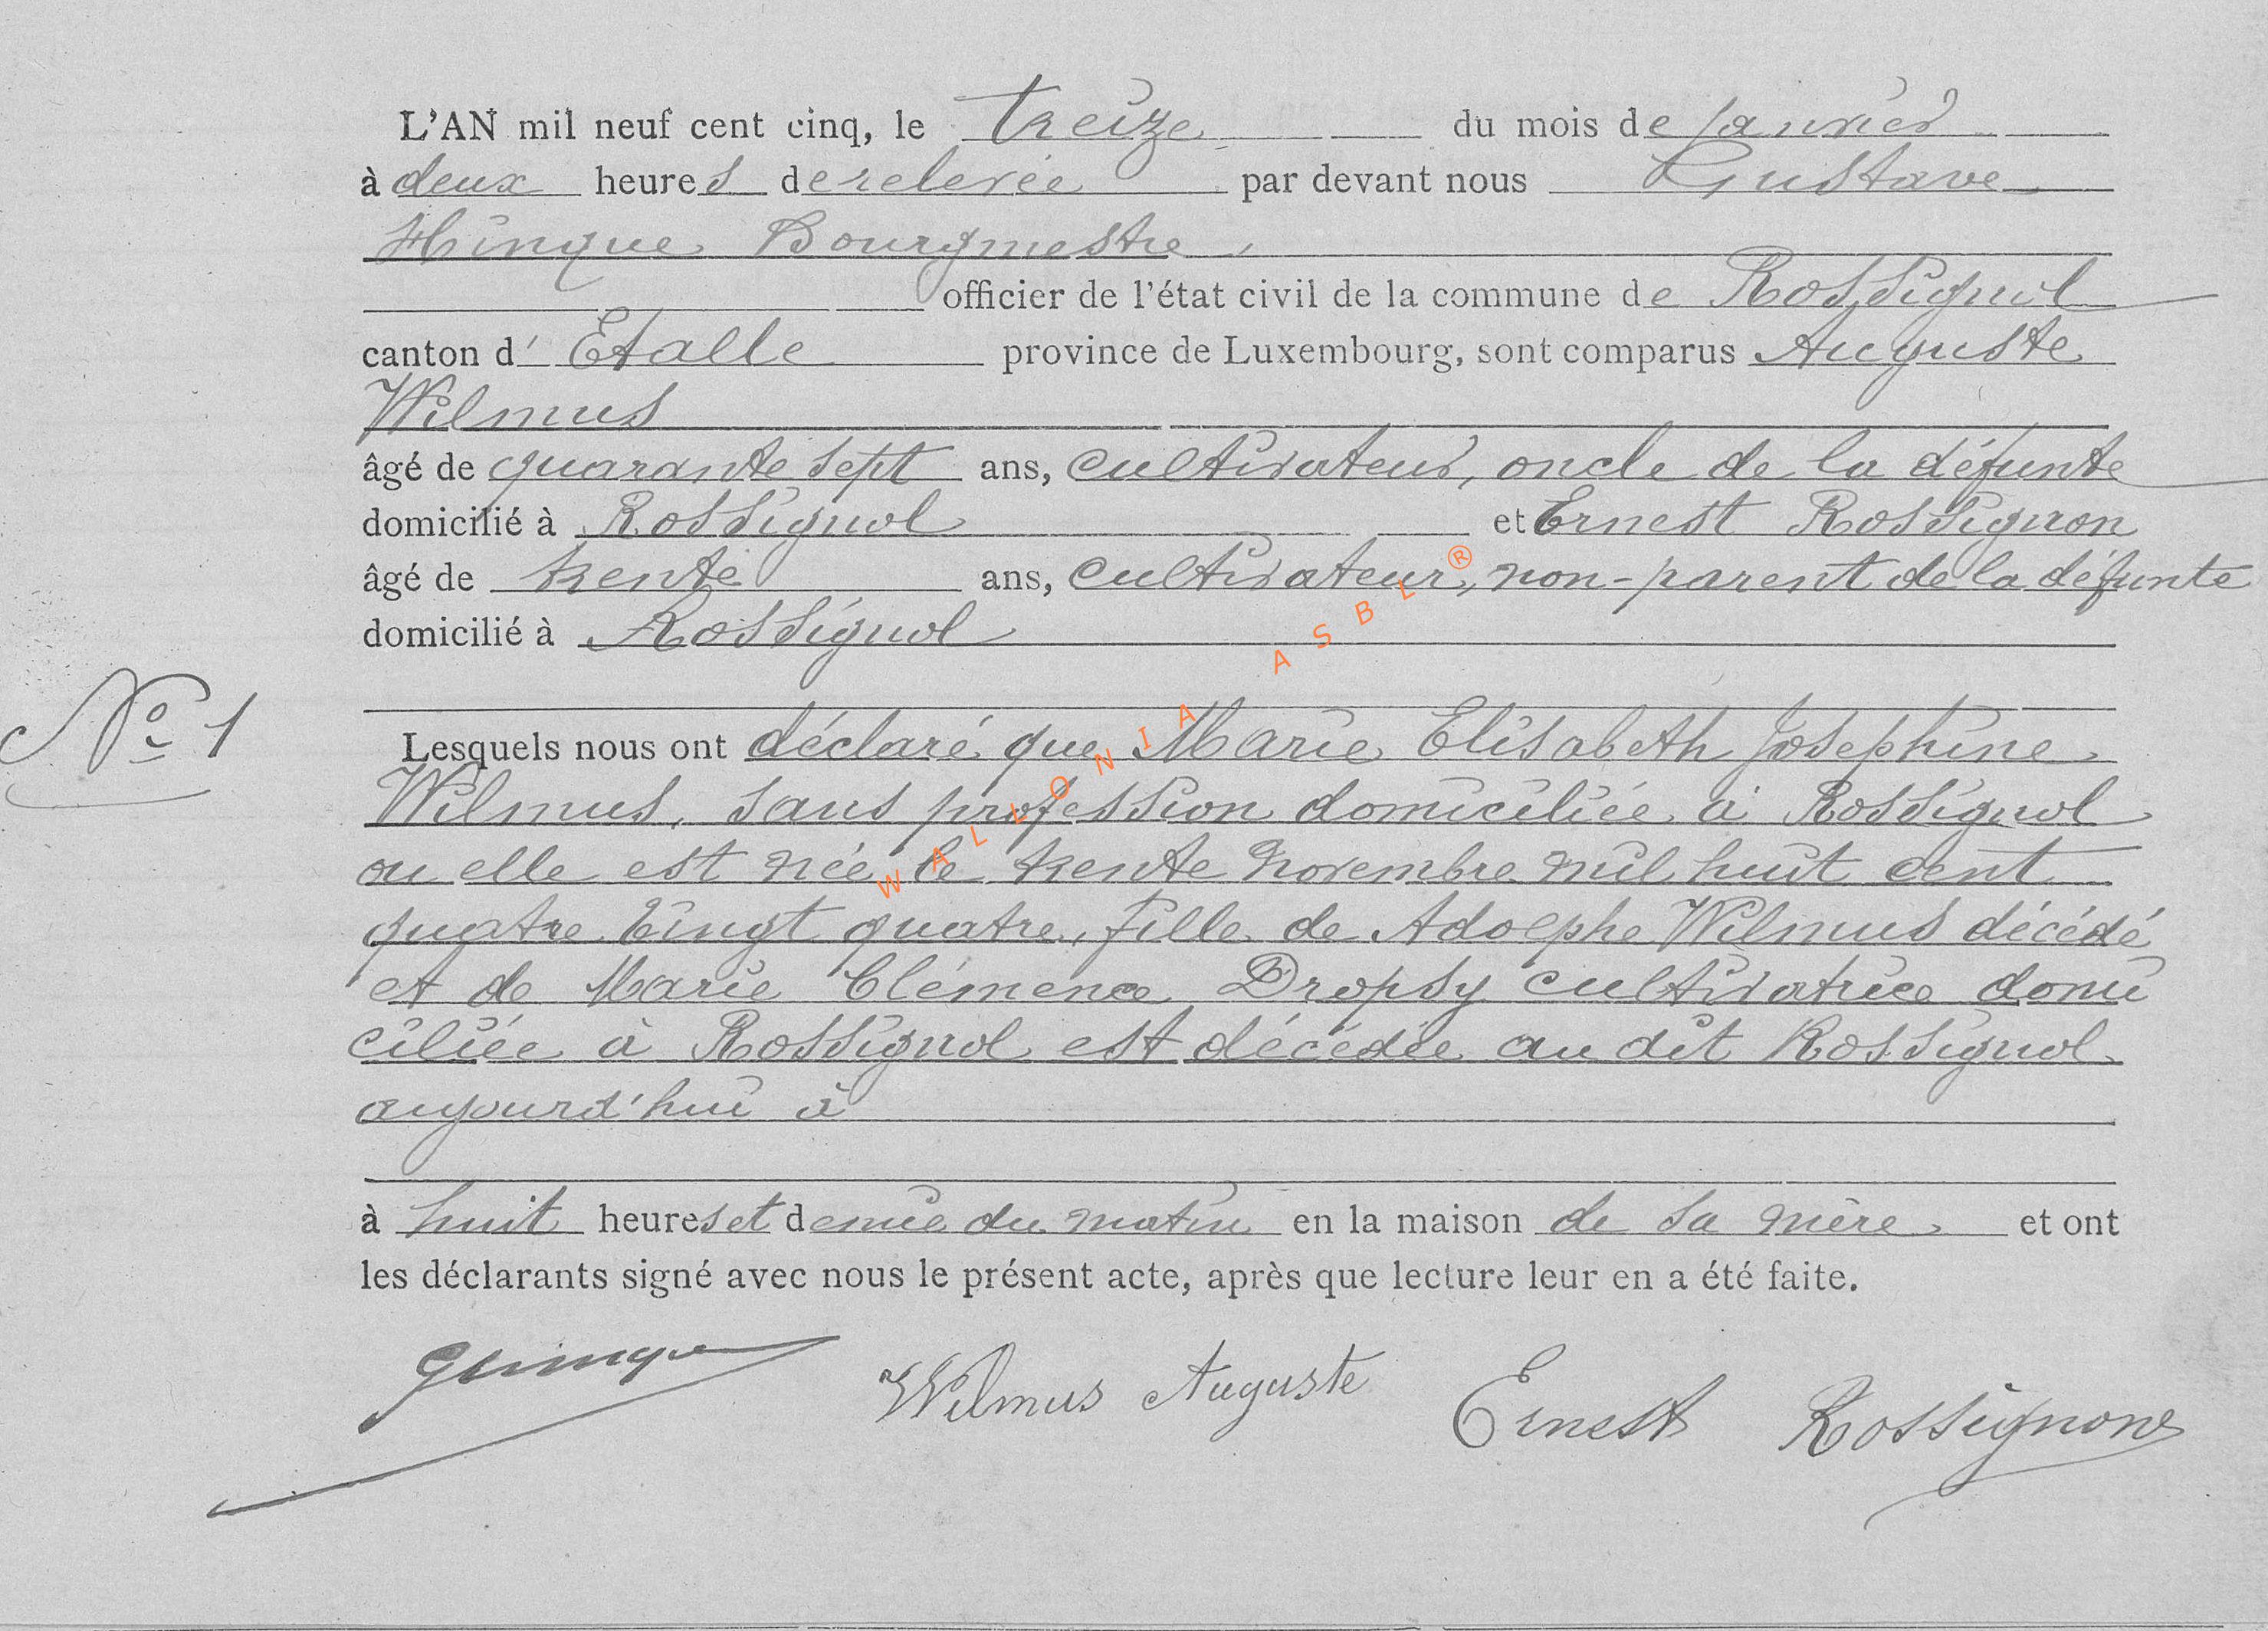 L'AN mil neuf cent cinq, le treize du mois de Janvier
à deux heures de relevée par devant nous Gustave
Hinque Bourgmestre,
officier de l'état civil de la commune de Rossignol
canton d' Etalle province de Luxembourg, sont comparus Auguste
Wilmus
âgé de quarante sept ans, cultivateur, oncle de la défunte
domicilié à Rossignol et Ernest Rossignon
âgé de trente ans, cultivateur, non-parent de la défunte
domicilié à Rossignol
N° 1
Lesquels nous ont déclaré que Marie Elisabeth Joséphine
Wilmus, sans profession domiciliée à Rossignol
ou elle est née le trente novembre mil huit cent
quatre vingt quatre, fille de Adolphe Wilmus décédé
et de Marie Clémence Dropsy cultivatrice domi
ciliée à Rossignol est décédée au dit Rossignol
aujourd'hui à
à huit heures et demie du matin en la maison de sa mère et ont
les déclarants signé avec nous le présent acte, après que lecture leur en a été faite.
GHinque Wilmus Auguste Ernest Rossignon
WALLONIA ASBL ®